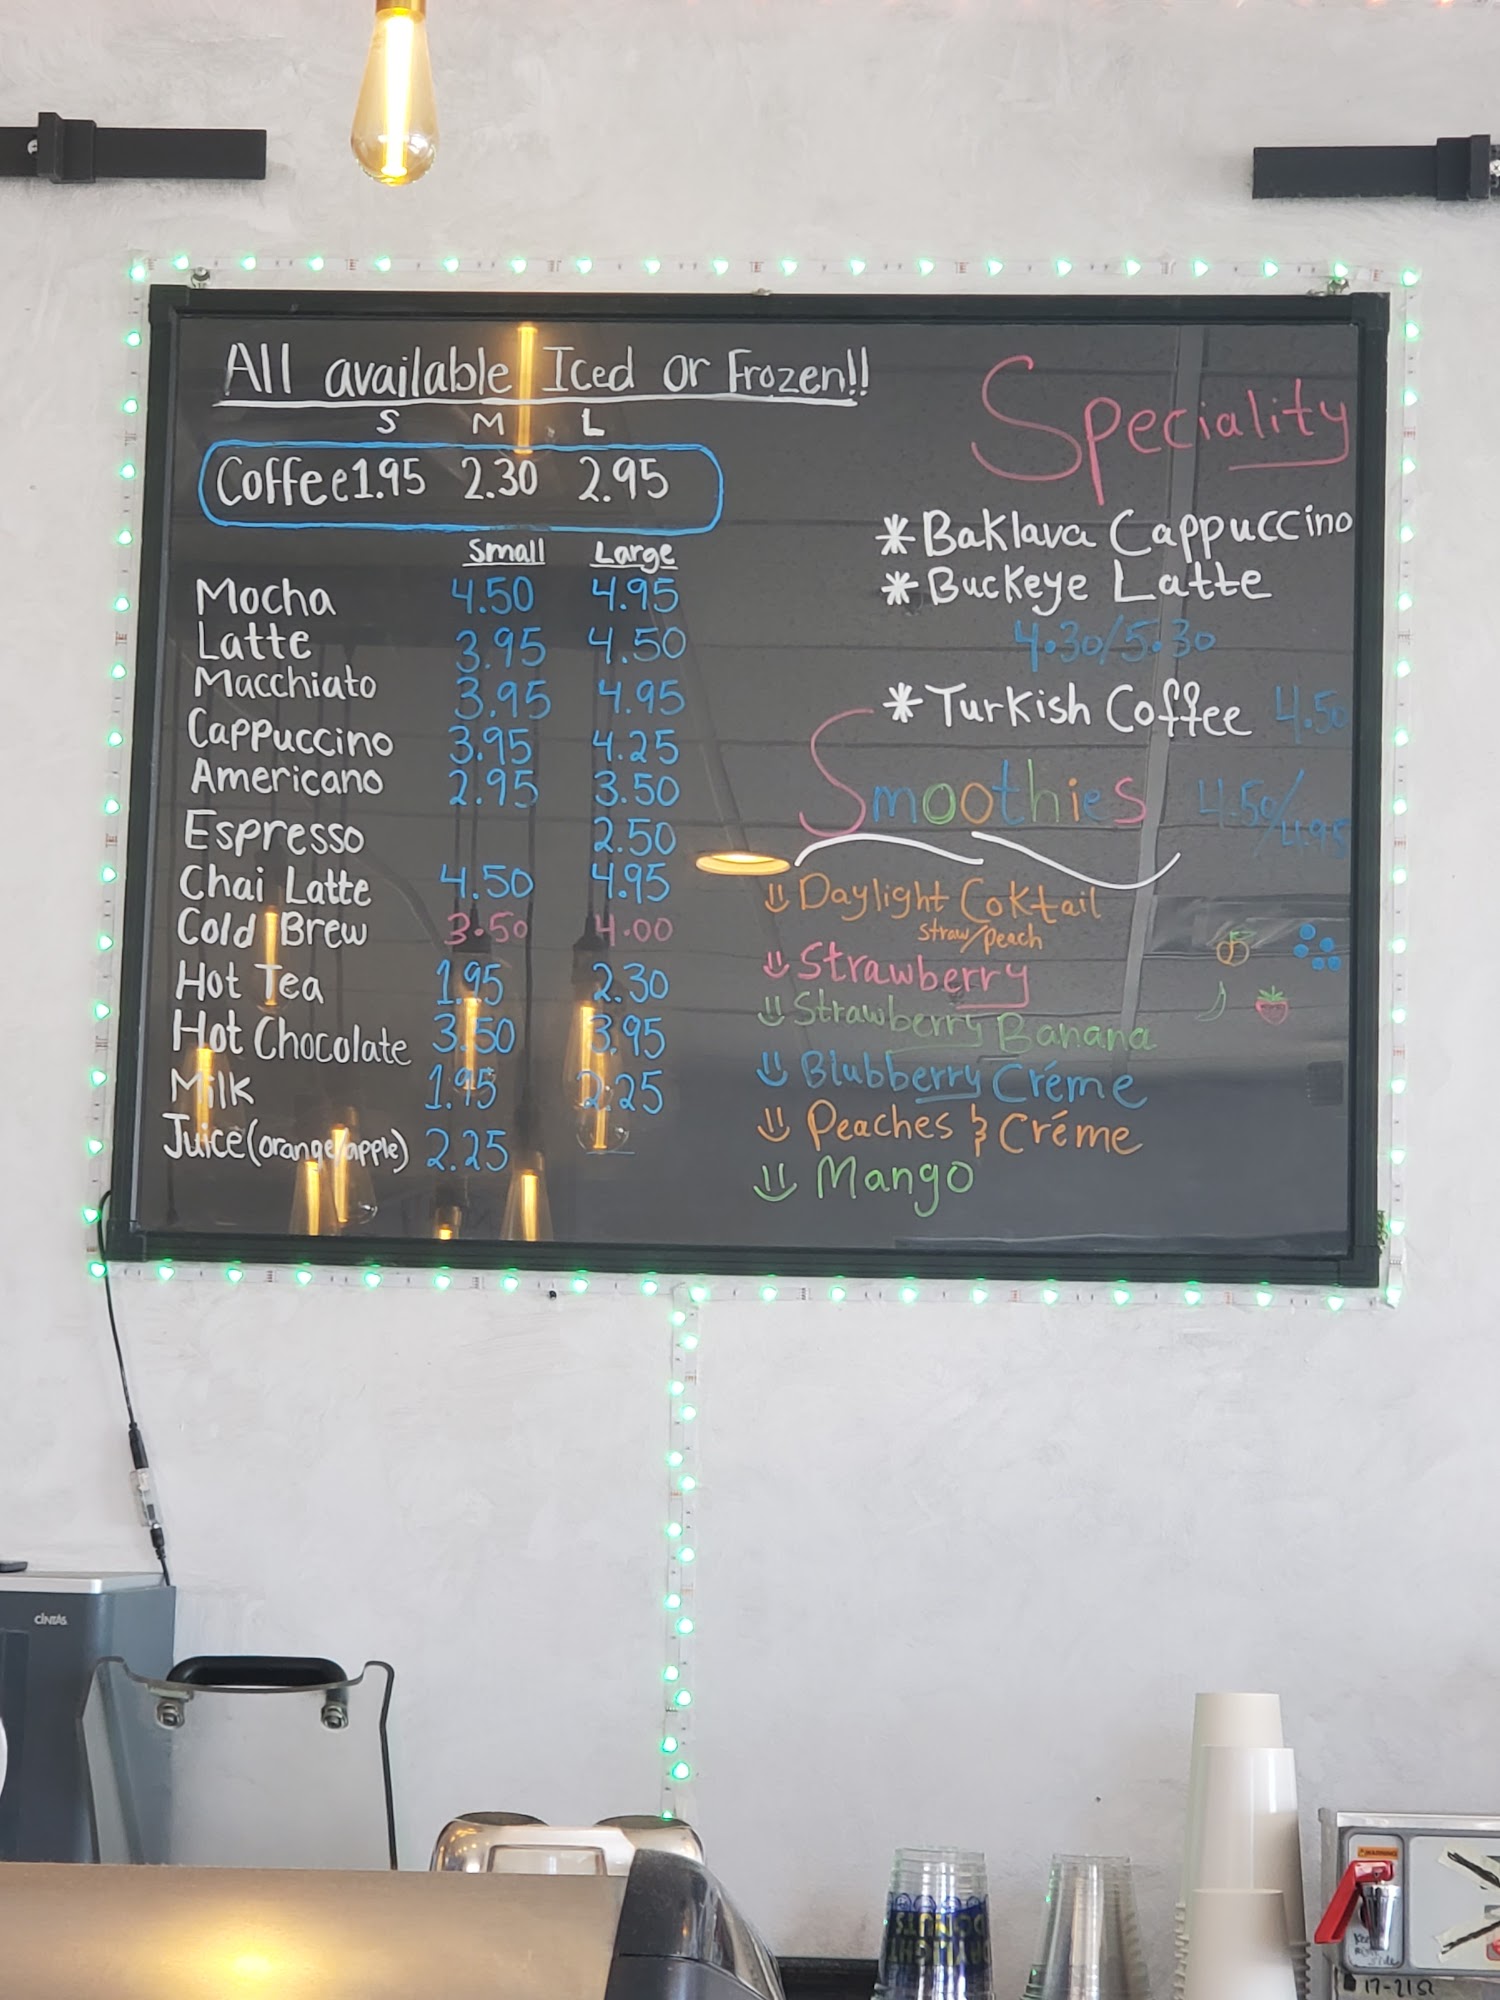 All available Iced or Frozen!!
S M L
Coffee 1.95 2.30 2.95
Small Large
Mocha 4.50 4.95
Latte 3.95 4.50
Macchiato 3.95 4.95
Cappuccino 3.95 4.25
Americano 2.95 3.50
Espresso 2.50
Chai Latte 4.50 4.95
Cold Brew 3.50 4.00
Hot Tea 1.95 2.30
Hot Chocolate 3.50 3.95
Milk 1.95 2.25
Juice (orange/apple) 2.25
Speciality
* Baklava Cappuccino
* Buckeye Latte
4.30/5.30
* Turkish Coffee 4.50
Smoothies 4.50/4.95
Daylight Coktail
straw/peach
Strawberry
Strawberry Banana
Blubberry Créme
Peaches & Créme
Mango
CINTAS
DAYLIGHT
DONUTS
WARNING
17-21